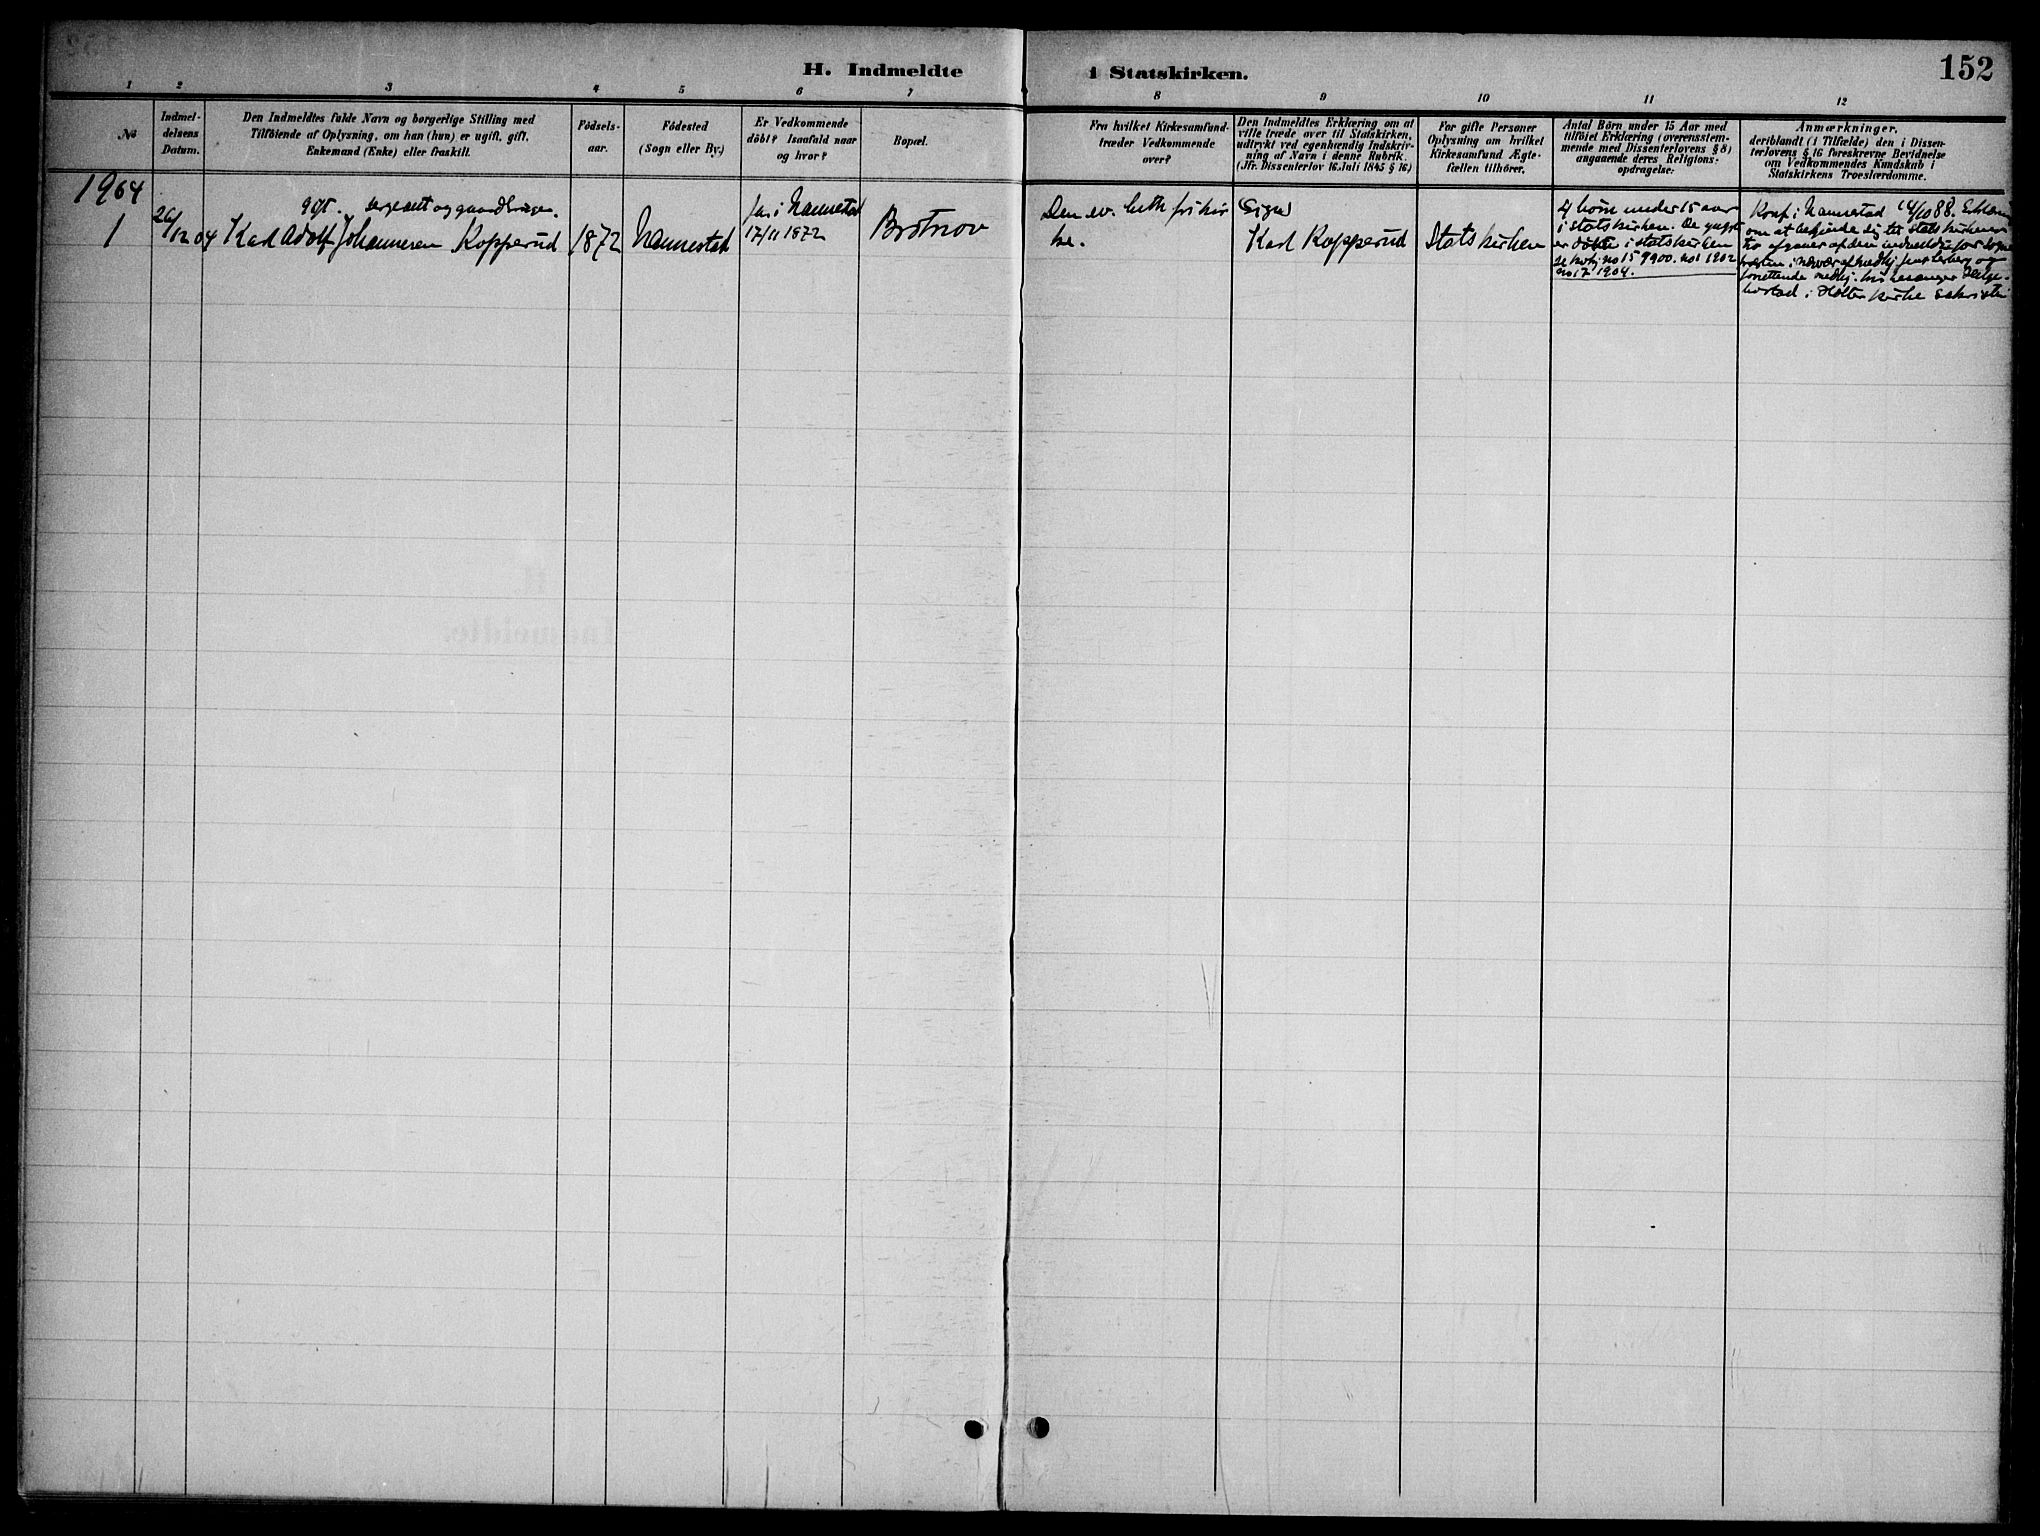 H. Indmeldte i Statskirken.
152
1 2 3 4 5 6 7 8 9 10 11 12
№
Indmel-
delsens
Datum.
Den Indmeldtes fulde Navn og borgerlige Stilling med
Tilföiende af Oplysning, om han (hun) er ugift, gift,
Enkemand (Enke) eller fraskilt.
Födsels-
aar.
Födested
(Sogn eller By.)
Er Vedkommende
döbt? Isaafald naar
og hvor?
Bopæl.
Fra hvilket Kirkesamfund
træder Vedkommende
over?
Den Indmeldtes Erklæring om at
ville træde over til Statskirken,
udtrykt ved egenhændig Indskriv-
ning af Navn i denne Rubrik.
(Jfr. Dissenterlov 16. Juli 1845 § 16)
For gifte Personer
Oplysning om hvilket
Kirkesamfund Ægte-
fællen tilhörer.
Antal Börn under 15 Aar med
tilföiet Erklæring (overensstem-
mende med Dissenterlovens § 8)
angaaende deres Religions-
opdragelse:
Anmærkninger,
deriblandt (i Tilfælde) den i Dissen-
terlovens § 16 foreskrevne Bevidnelse
om Vedkommendes Kundskab i
Statskirkens Troeslærdomme.
1904
1
26/12 04
ggt. sergeant og gaardbruger.
Karl Adolf Johannesen Kopperud
1872
Nannestad
Ja, i Nannestad
17/11 1872
Brotnov
Den ev. luth frikir
ke.
Sign
Karl Kopperud
Statskirken
4 börn under 15 aar
i statskirken. De yngste
er döbte i statskirken
se no 15 1900. no 1 1902
no 17 1904.
Konf. i Nannestad 14/10 88.
om at bekjende sig til Statskirkens
tro afgiver af den indmeldte for sogne
presten i nærvær af
kirkesanger
i Holter kirke sakristi